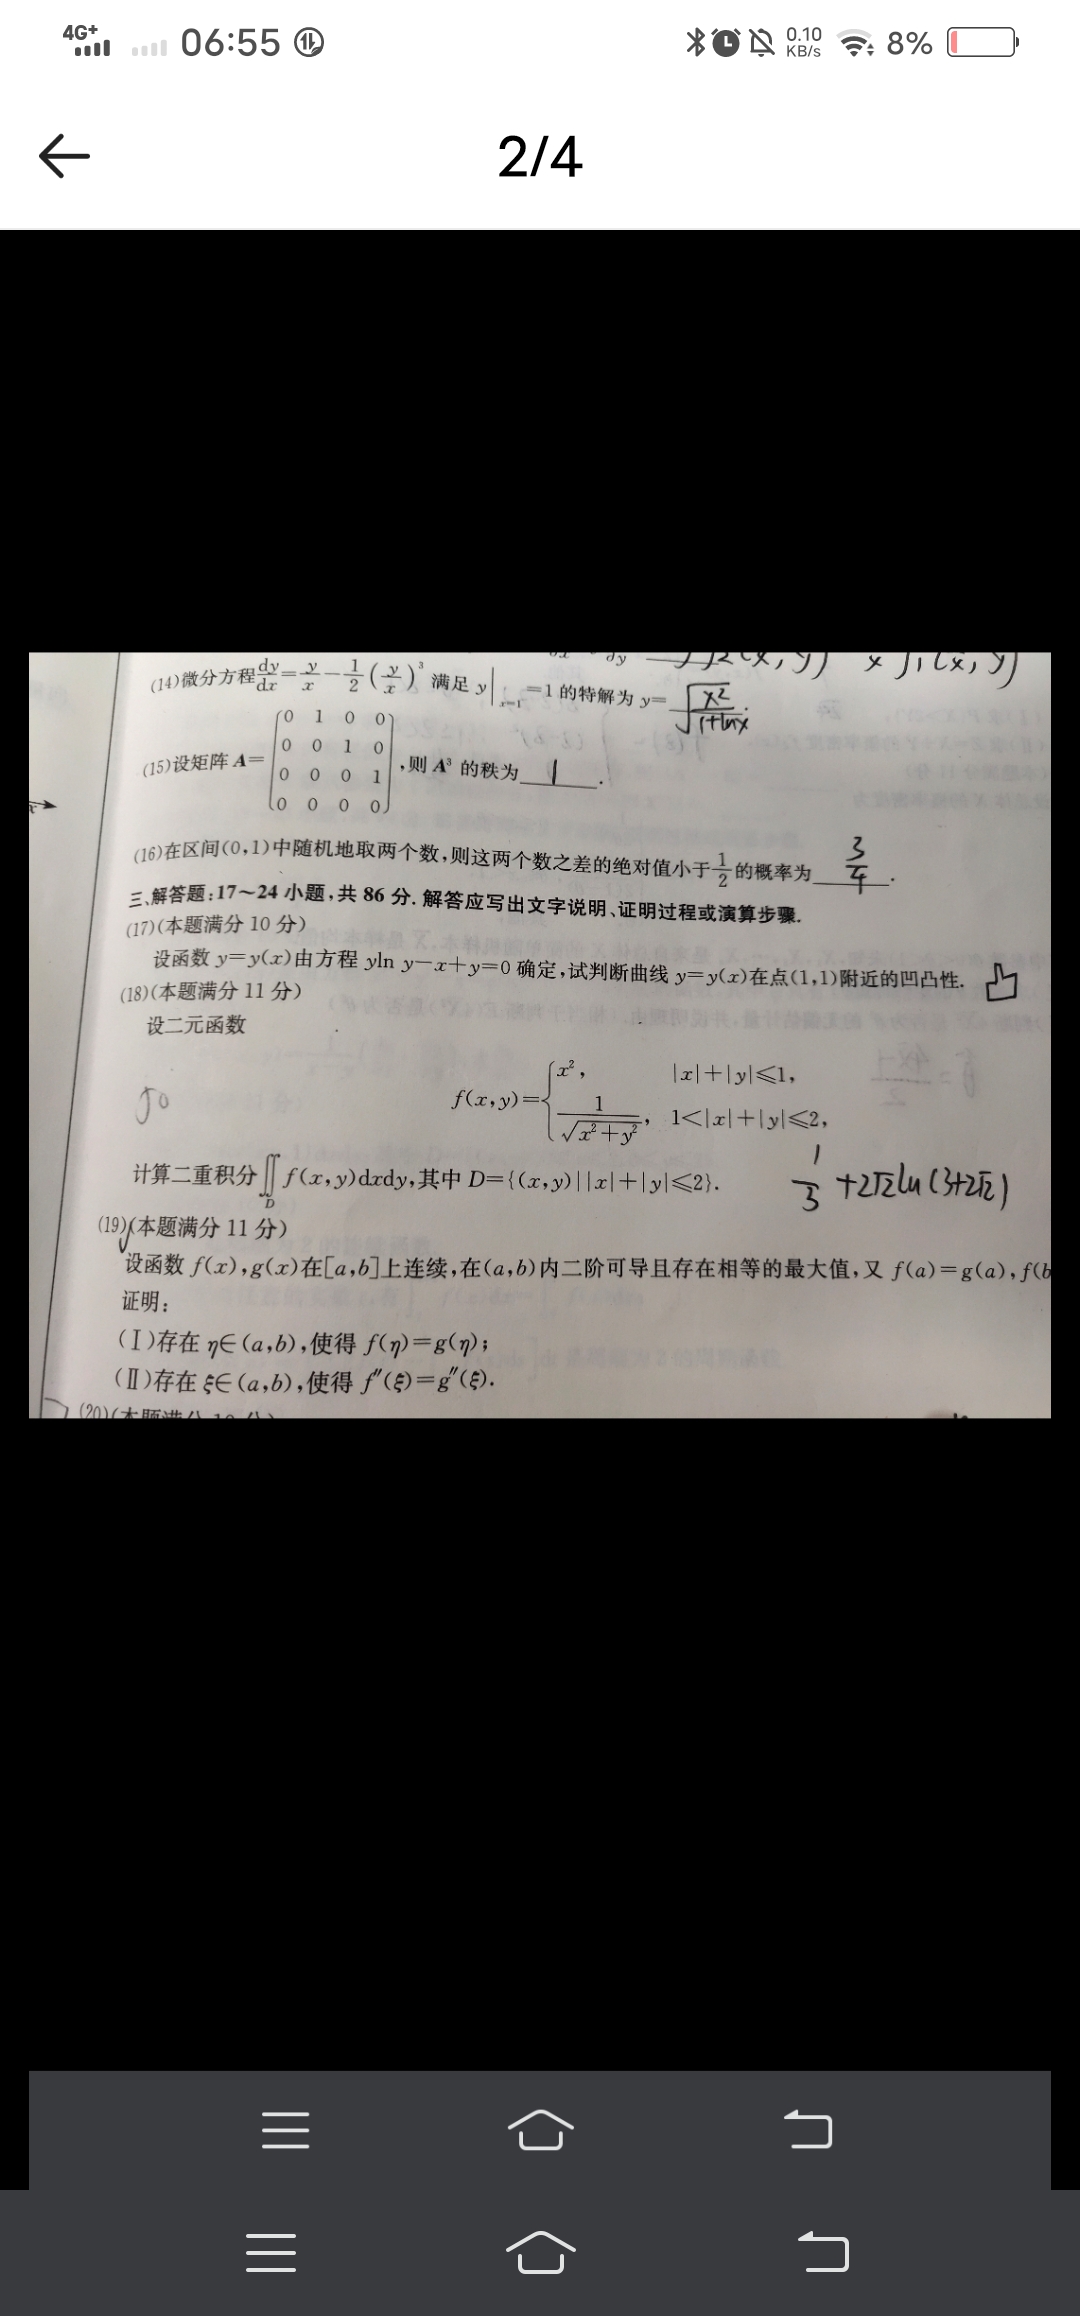 4G+ 06:55 0.10 KB/s 8%
2/4
(14)微分方程dy/dx=y/x-1/2(y/x)³ 满足 y|x=1=1 的特解为 y=√(x²/(1+lnx)).
(15)设矩阵 A=(0 1 0 0
0 0 1 0
0 0 0 1
0 0 0 0),则 A³ 的秩为 1 .
(16)在区间(0,1)中随机地取两个数,则这两个数之差的绝对值小于1/2的概率为 3/4 .
三、解答题:17~24 小题,共 86 分. 解答应写出文字说明、证明过程或演算步骤.
(17)(本题满分 10 分)
设函数 y=y(x)由方程 yln y-x+y=0 确定,试判断曲线 y=y(x)在点(1,1)附近的凹凸性. 凸
(18)(本题满分 11 分)
设二元函数
f(x,y)={x², |x|+|y|≤1,
1/√(x²+y²), 1<|x|+|y|≤2,
计算二重积分∬D f(x,y)dxdy,其中 D={(x,y)||x|+|y|≤2}. 1/3+2√2ln(3+2√2)
(19)(本题满分 11 分)
设函数 f(x),g(x)在[a,b]上连续,在(a,b)内二阶可导且存在相等的最大值,又 f(a)=g(a),f(b
证明:
(Ⅰ)存在 η∈(a,b),使得 f(η)=g(η);
(Ⅱ)存在 ξ∈(a,b),使得 f″(ξ)=g″(ξ).